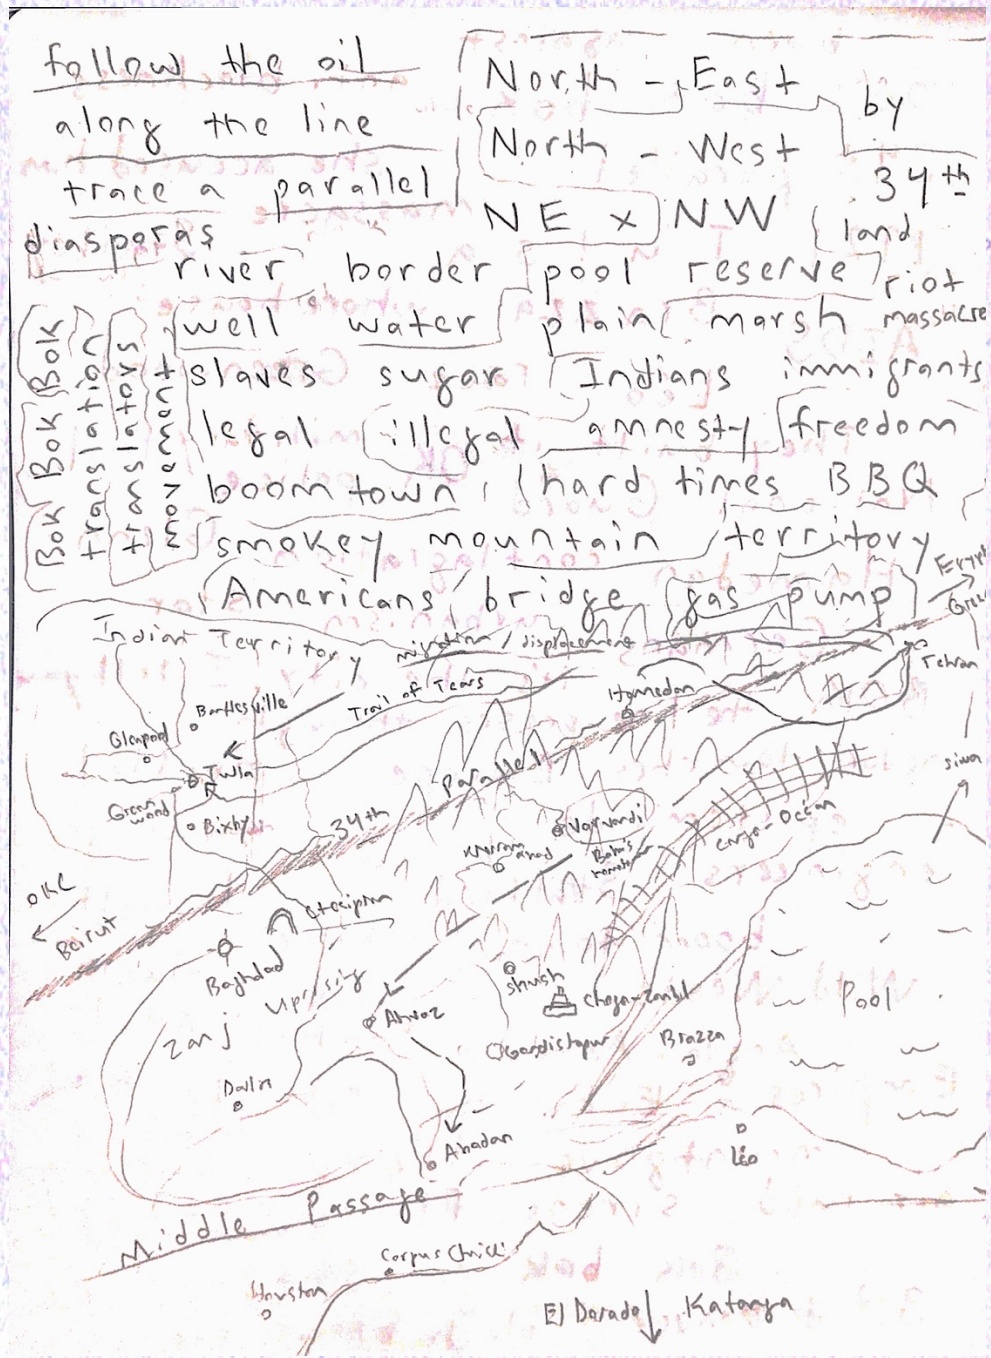 follow the oil
along the line
trace a parallel
diasporas
North - East
North - West
NE x NW
by
34th
land
river border pool reserve riot
well water plain marsh massacre
slaves sugar Indians immigrants
legal illegal amnesty freedom
boomtown hard times BBQ
smokey mountain territory
Americans bridge gas pump
Bok Bok Bok
translation
translators
movement
Indian Territory
migration / displacement
Trail of Tears
Bartlesville
Glenpool
Tulsa
Greenwood
Bixby
34th Parallel
Hamedan
Tehran
siwa
Varvandi
Congo-Océan
OKC
Beirut
Ctesiphon
Baghdad
Uprising
Zanj
Ahvaz
Shush
Choga-Zanbil
Gondishapur
Brazza
Pool
Abadan
Léo
Middle Passage
Corpus Christi
Houston
El Dorado
Katanga